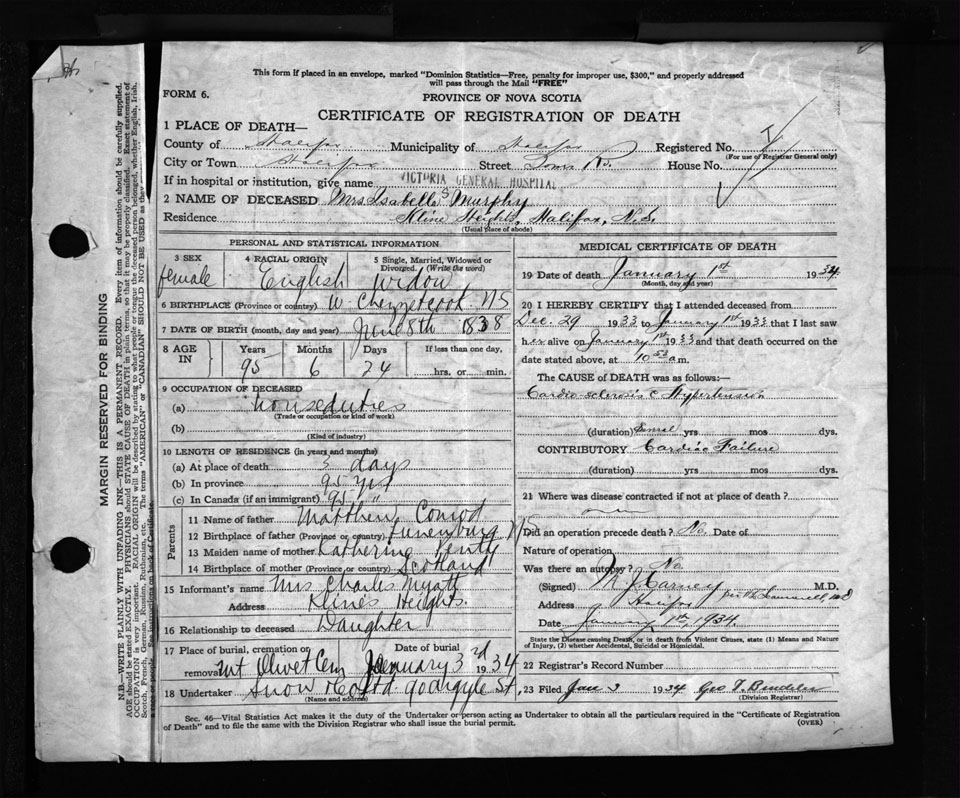 This form if placed in an envelope, marked "Dominion Statistics—Free, penalty for improper use, $300," and properly addressed
will pass through the Mail "FREE"
FORM 6.
PROVINCE OF NOVA SCOTIA
CERTIFICATE OF REGISTRATION OF DEATH
1 PLACE OF DEATH—
County of Halifax Municipality of Halifax Registered No.
(For use of Registrar General only)
City or Town Halifax Street Tower Rd. House No.
If in hospital or institution, give name VICTORIA GENERAL HOSPITAL
2 NAME OF DECEASED Mrs Isabelle S Murphy
Residence Kline Heights, Halifax, N.S.
(Usual place of abode)
PERSONAL AND STATISTICAL INFORMATION
3 SEX 4 RACIAL ORIGIN 5 Single, Married, Widowed or
Divorged. (Write the word)
female English widow
6 BIRTHPLACE (Province or country) W. Chezzetcook NS
7 DATE OF BIRTH (month, day and year) June 8th 1838
8 AGE IN Years Months Days If less than one day.
95 6 24 hrs. or min.
9 OCCUPATION OF DECEASED
(a) houseduties
(Trade or occupation or kind of work)
(b)
(Kind of industry)
10 LENGTH OF RESIDENCE (in years and months)
(a) At place of death 3 days
(b) In province 95 yrs
(c) In Canada (if an immigrant) 95 "
Parents
11 Name of father Matthew Conrod
12 Birthplace of father (Province or country) Lunenburg N/S
13 Maiden name of mother Katherine
14 Birthplace of mother (Province or country) Scotland
15 Informant's name Mrs Charles Myatt
Address Klines Heights.
16 Relationship to deceased Daughter
17 Place of burial, cremation or removal Date of burial
Mt Olivet Cem January 3rd 1934
18 Undertaker Snow & Co Ltd. 90 argyle St,
(Name and address)
MEDICAL CERTIFICATE OF DEATH
19 Date of death January 1st 1934
(Month, day and year)
20 I HEREBY CERTIFY that I attended deceased from
Dec. 29 1933 to January 1st 1933 that I last saw
her alive on January 1st 1933 and that death occurred on the
date stated above, at 10 a m.
The CAUSE OF DEATH was as follows:—
Cardio-sclerosis c Hypertension
(duration) Several yrs mos dys.
CONTRIBUTORY Cardiac Failure
(duration) yrs mos dys.
21 Where was disease contracted if not at place of death?
Did an operation precede death? No. Date of
Nature of operation
Was there an autopsy? No.
(Signed) M. J. Carney M.D.
Address Halifax
Date January 1st, 1934.
State the Disease causing Death, or in death from Violent Causes, state (1) Means and Nature
of Injury, (2) whether Accidental, Suicidal or Homicidal.
22 Registrar's Record Number
23 Filed Jan 3 1934 Geo T
(Division Registrar)
Sec. 46—Vital Statistics Act makes it the duty of the Undertaker or person acting as Undertaker to obtain all the particulars required in the "Certificate of Registration
of Death" and to file the same with the Division Registrar who shall issue the burial permit.
(OVER)
MARGIN RESERVED FOR BINDING
N.B.—WRITE PLAINLY WITH UNFADING INK—THIS IS A PERMANENT RECORD. Every item of information should be carefully supplied.
AGE should be stated EXACTLY. PHYSICIANS should STATE CAUSE OF DEATH in plain terms, so that it may be properly classified. Exact statement of
OCCUPATION is very important. RACIAL ORIGIN will be described by stating to what people or tongue the deceased person belonged, whether English, Irish,
Scotch, French, German, Russian, Ruthenian, etc. The terms "AMERICAN" or "CANADIAN" SHOULD NOT BE USED as they
See instructions on back of Certificate.